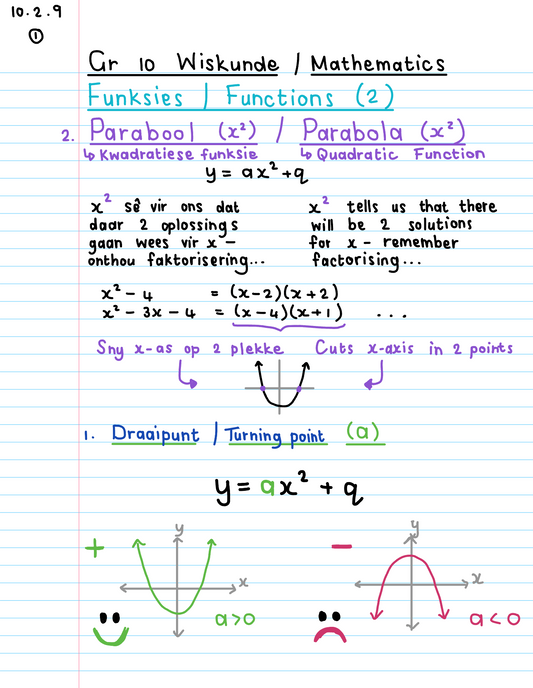 10.2.9
①
Gr 10 Wiskunde / Mathematics
Funksies / Functions (2)
2. Parabool (x²) / Parabola (x²)
↳ Kwadratiese funksie ↳ Quadratic Function
y = ax² + q
x² sê vir ons dat
daar 2 oplossings
gaan wees vir x –
onthou faktorisering...
x² tells us that there
will be 2 solutions
for x – remember
factorising...
x² – 4 = (x–2)(x+2)
x² – 3x – 4 = (x–4)(x+1) ...
Sny x-as op 2 plekke Cuts x-axis in 2 points
1. Draaipunt / Turning point (a)
y = ax² + q
+ y x a>0
– y x a<0